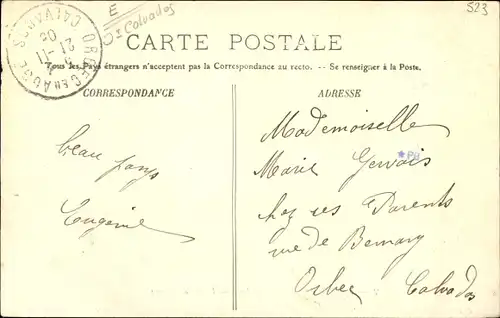 523
E
Cs Calvados
ORBEC EN AUGE
21 - 11
05
CALVADOS
CARTE POSTALE
Tous les Pays étrangers n'acceptent pas la Correspondance au recto. -- Se renseigner à la Poste.
CORRESPONDANCE
beau pays
Eugénie
ADRESSE
Mademoiselle
Marie Gervais
PB
chez ses Parents
rue de Bernay
Orbec Calvados